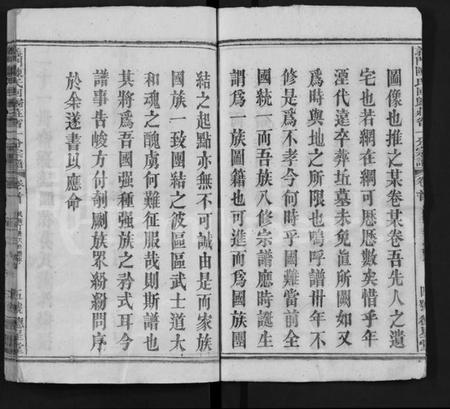 圖像也推之某卷某卷吾先人之遺
宅也若網在綱可歷歷數矣惜乎年
湮代遠卒葬坵墓未免聞所闕如又
爲時與地之所限也嗚呼譜卅年不
修是爲不孝今何時乎國難當前全
國統一而吾族八修宗譜應時誕生
謂爲一族圖籍也可進而爲國族團
結之起點亦無不可誠由是而家族
國族一致團結之彼區區武士道大
和魂之醜虜何難征服哉則斯譜也
其將爲吾國強種強族之矜式耳今
譜事告峻方付剞劂族眾紛紛問序
於余遂書以應命